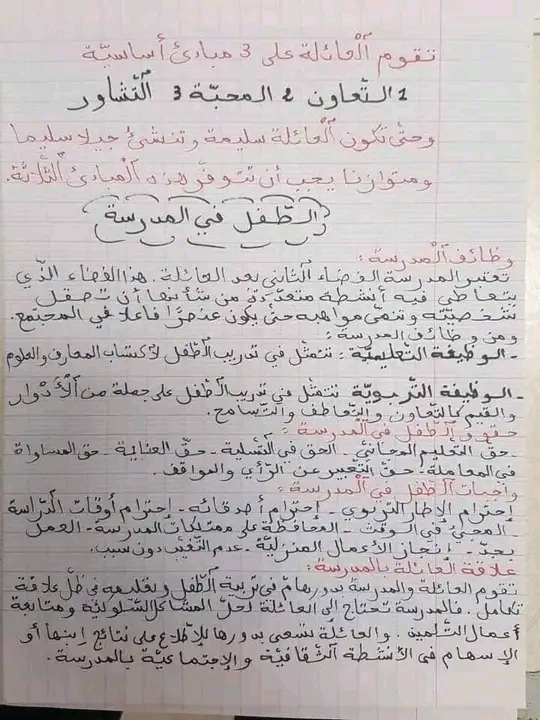 تقوم العائلة على 3 مبادئ أساسيّة
1 التّعاون 2 المحبّة 3 التّشاور
وحتّى تكون العائلة سليمة وتنشئ جيلا سليما
ومتوازنا يجب أن تتوفّر هذه المبادئ الثّلاثة.
الطّفل في المدرسة
وظائف المدرسة :
تعتبر المدرسة الفضاء الثّاني بعد العائلة. هذا الفضاء الّذي
يتعاطى فيه أنشطة متعدّدة من شأنها أن تصقل
شخصيّته وتنمّي مواهبه حتّى يكون عنصرًا فاعلا في المجتمع.
ومن وظائف المدرسة :
- الوظيفة التّعليميّة : تتمثّل في تدريب الطّفل لاكتساب المعارف والعلوم
- الوظيفة التّربويّة تتمثّل في تدريب الطّفل على جملة من الأدوار
والقيم كالتّعاون والتّعاطف والتّسامح.
حقوق الطّفل في المدرسة :
حقّ التّعليم المجانيّ - الحق في التّسلية - حقّ العناية - حق المساواة
في المعاملة - حقّ التّعبير عن الرّأي والمواقف.
واجبات الطّفل في المدرسة :
إحترام الإطار التّربوي - إحترام أصدقائه - إحترام أوقات الدّراسة
- المجيء في الوقت - المحافظة على ممتلكات المدرسة - العمل
بجدّ - إنجاز الأعمال المنزليّة - عدم التّغيّب دون سبب.
علاقة العائلة بالمدرسة :
تقوم العائلة والمدرسة بدور هامّ في تربية الطّفل وتعليمه في ظلّ علاقة
تكامل. فالمدرسة تحتاج إلى العائلة لحلّ المشاكل السّلوكيّة ومتابعة
أعمال التّلميذ. والعائلة تسعى بدورها للإطّلاع على نتائج إبنها أو
الإسهام في الأنشطة الثّقافيّة والإجتماعيّة بالمدرسة.